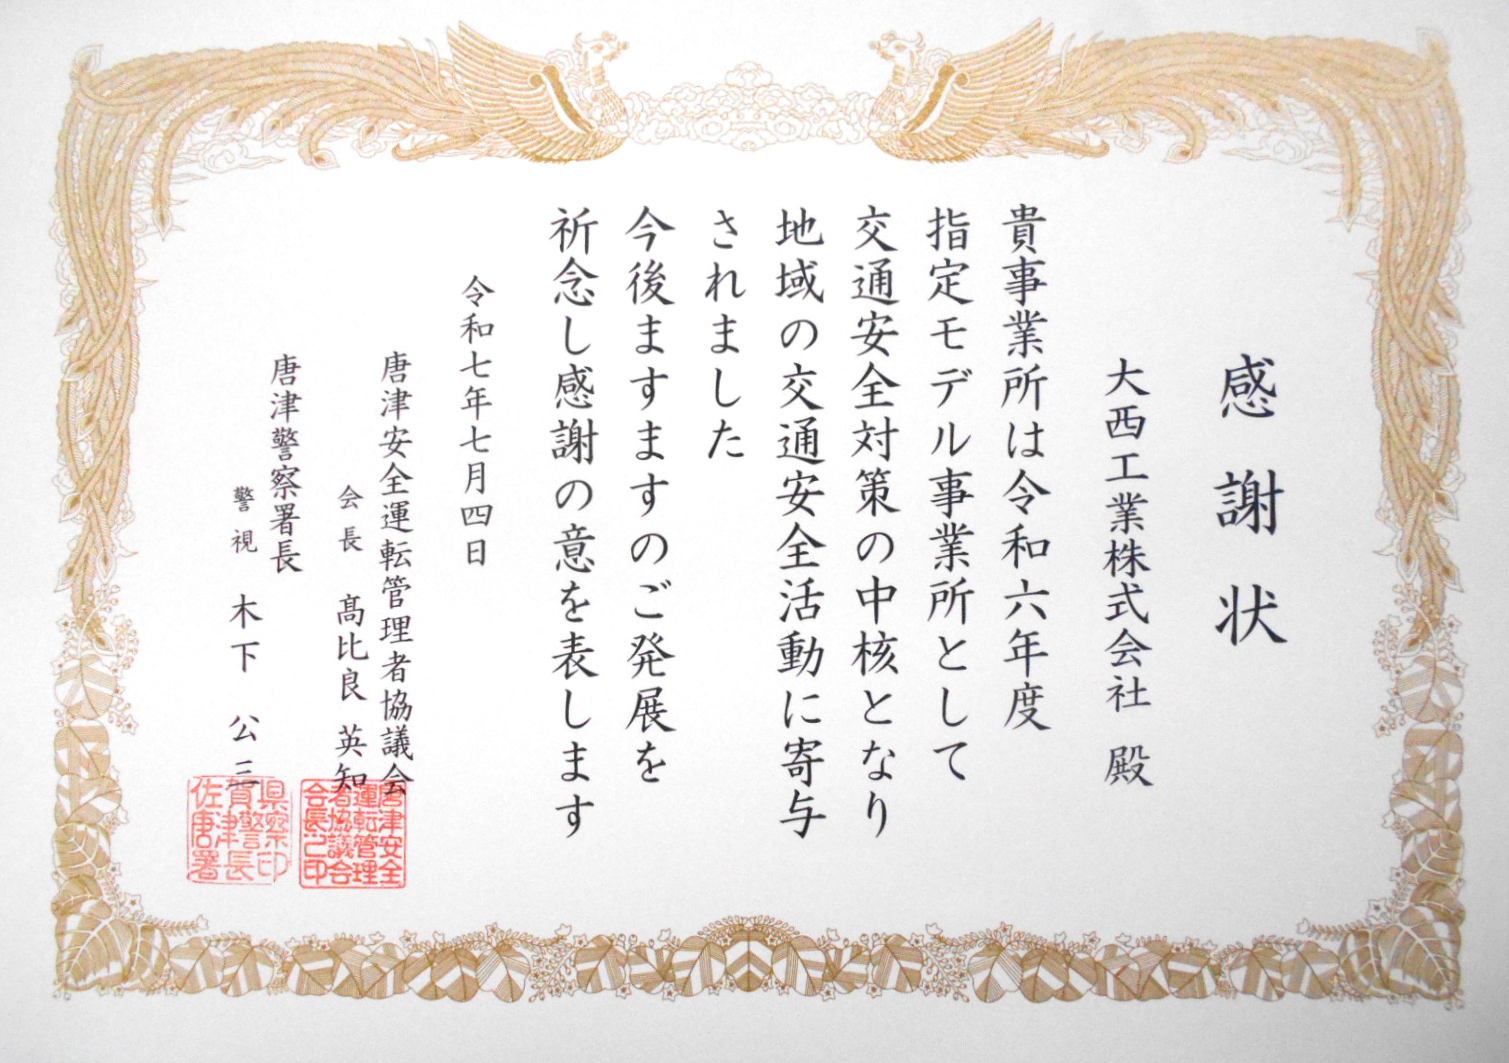 感謝状
大西工業株式会社 殿
貴事業所は令和六年度
指定モデル事業所として
交通安全対策の中核となり
地域の交通安全活動に寄与
されました
今後ますますのご発展を
祈念し感謝の意を表します
令和七年七月四日
唐津安全運転管理者協議会
会長 髙比良 英知
唐津警察署長
警視 木下 公三
唐津安全
運転管理
者協議会
会長之印
県察印
賀津警長
佐唐署